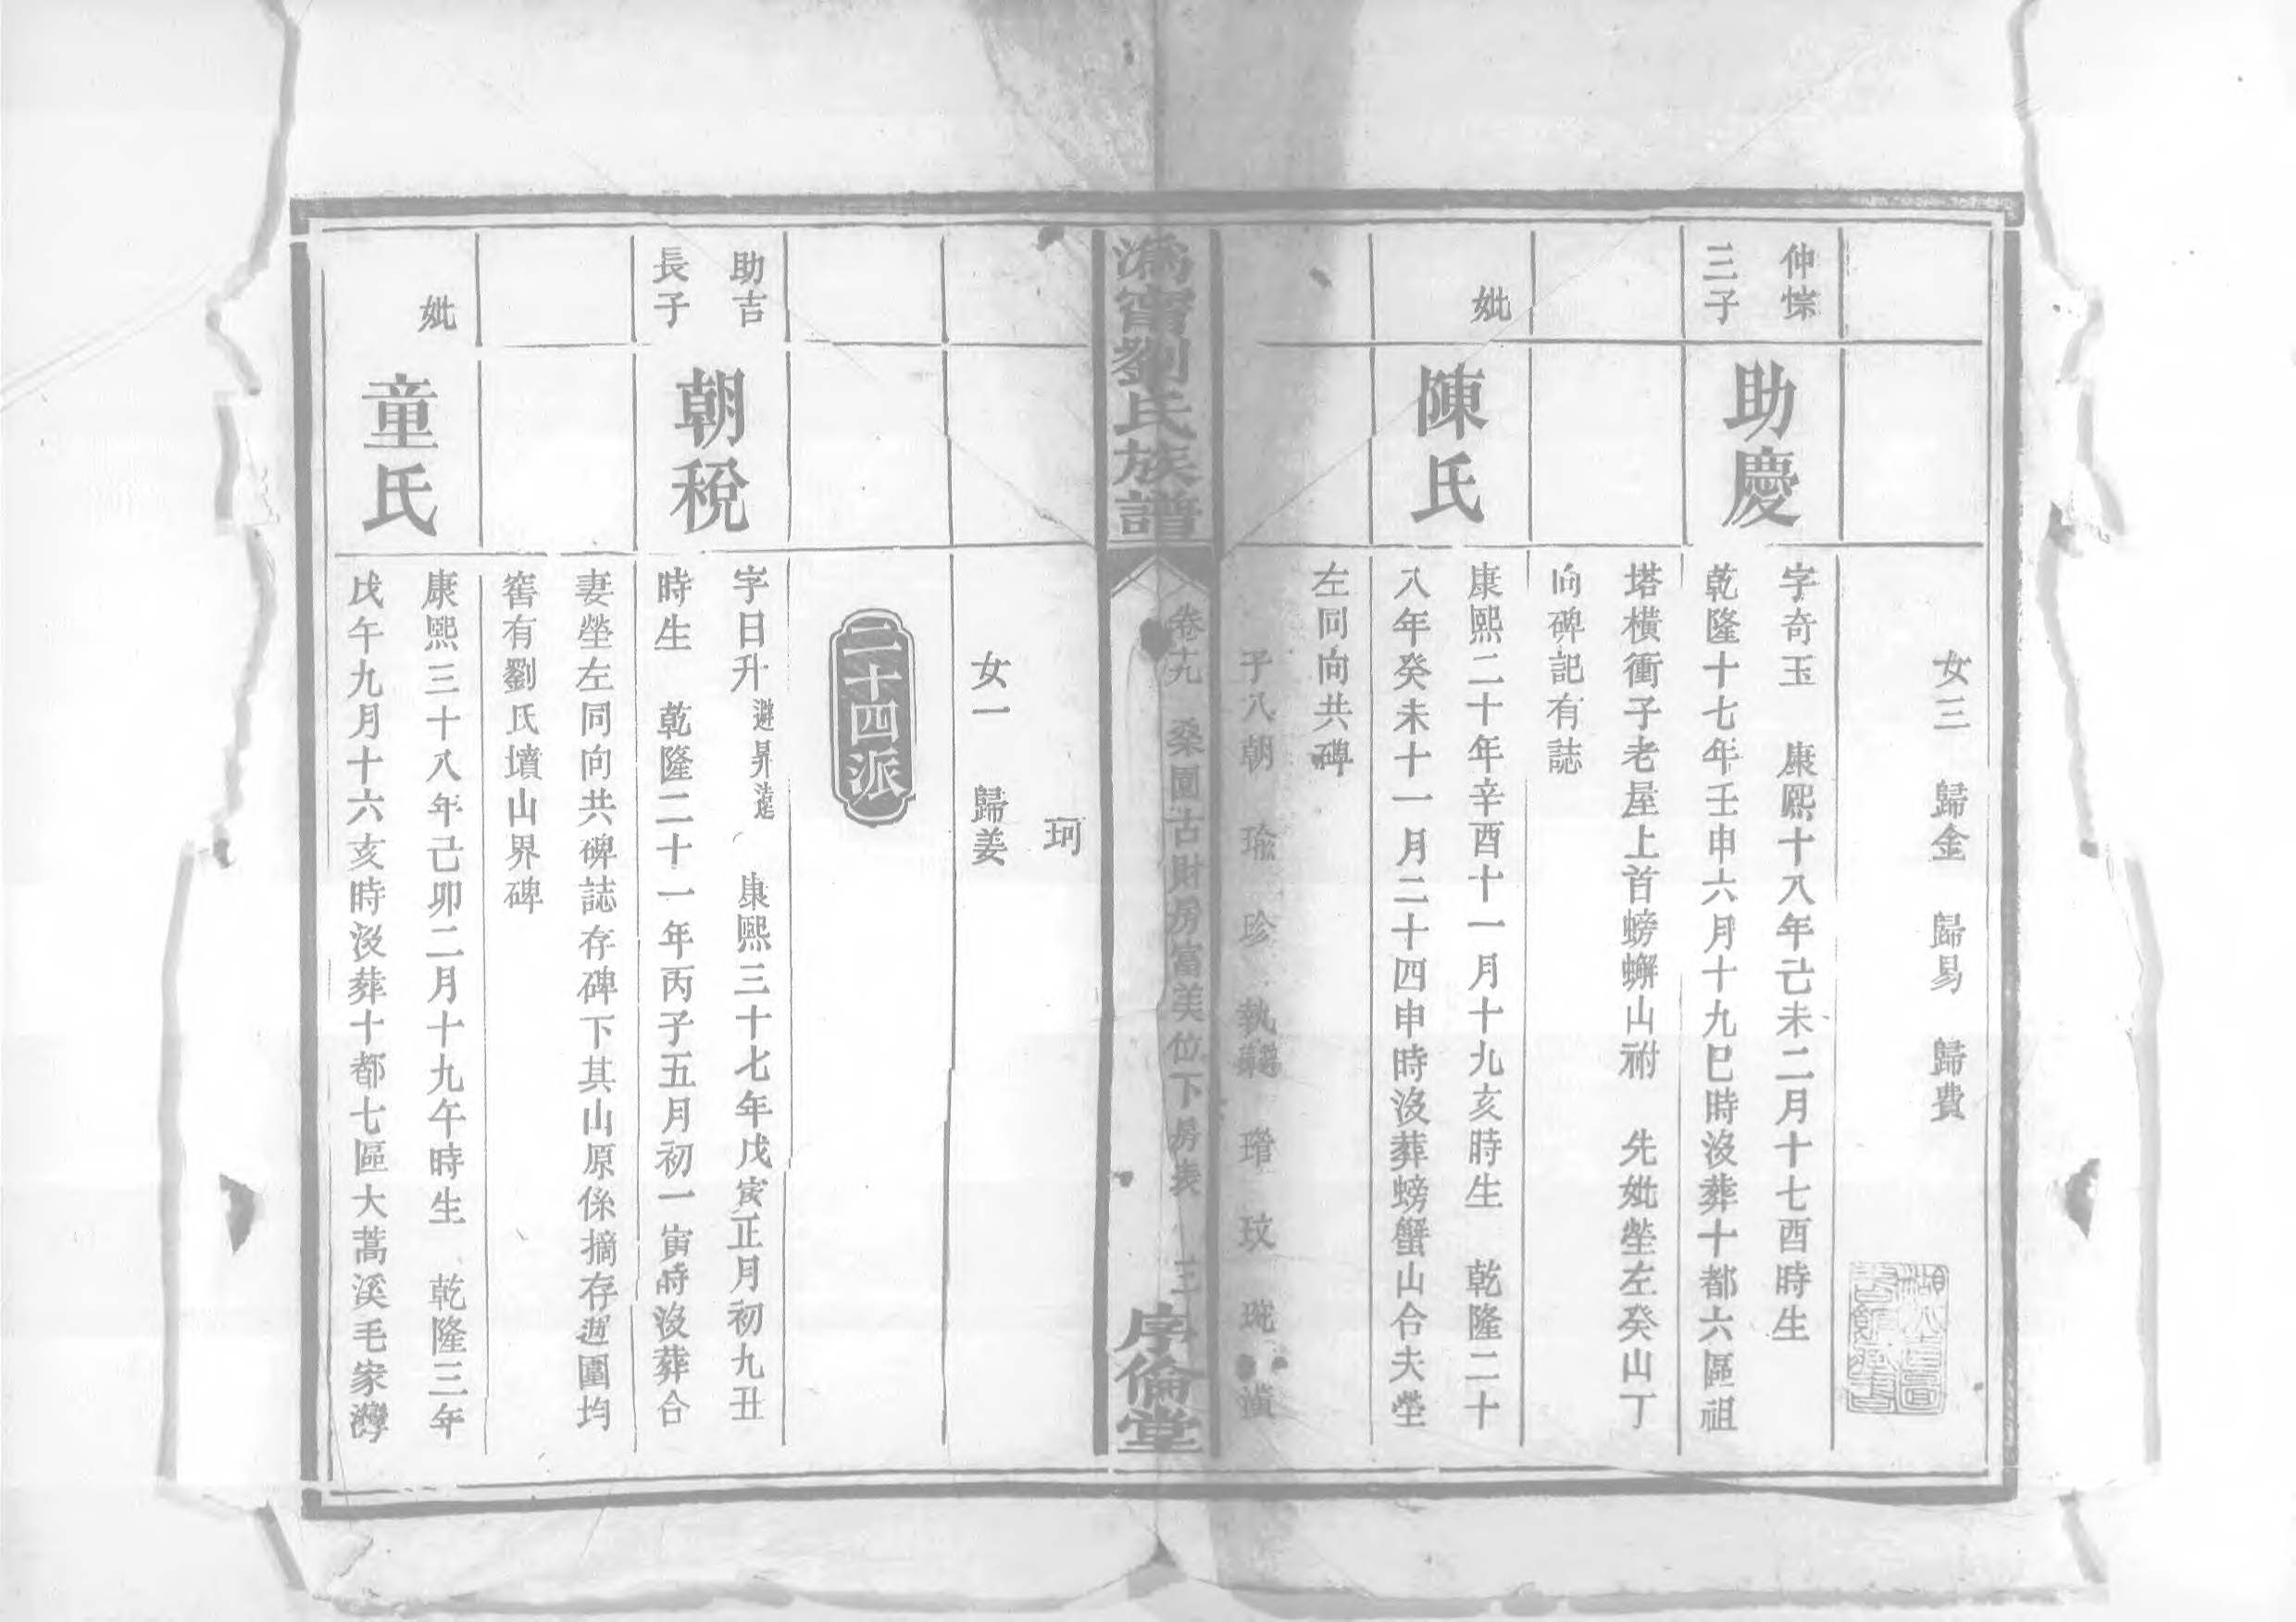 女三 歸金 歸易 歸費
仲悰
三子
助慶
字奇玉 康熙十八年己未二月十七酉時生
乾隆十七年壬申六月十九巳時沒葬十都六區祖
塔橫衝子老屋上首螃蠏山祔 先妣塋左癸山丁
向碑記有誌
妣
陳氏
康熙二十年辛酉十一月十九亥時生 乾隆二十
八年癸未十一月二十四申時沒葬螃蟹山合夫塋
左同向共碑
子八朝 瑜 珍 執 瑨 玟 琓
溈甯劉氏族譜
卷十九 桑園古財房富美位下房表 三
序倫堂
珂
女一 歸姜
二十四派
助吉
長子
朝稅
字日升 避昇遠 康熙三十七年戊寅正月初九丑
時生 乾隆二十一年丙子五月初一寅時沒葬合
妻塋左同向共碑誌存碑下其山原係摘存週圍均
窖有劉氏墳山界碑
妣
童氏
康熙三十八年己卯二月十九午時生 乾隆三年
戊午九月十六亥時沒葬十都七區大蒿溪毛家灣